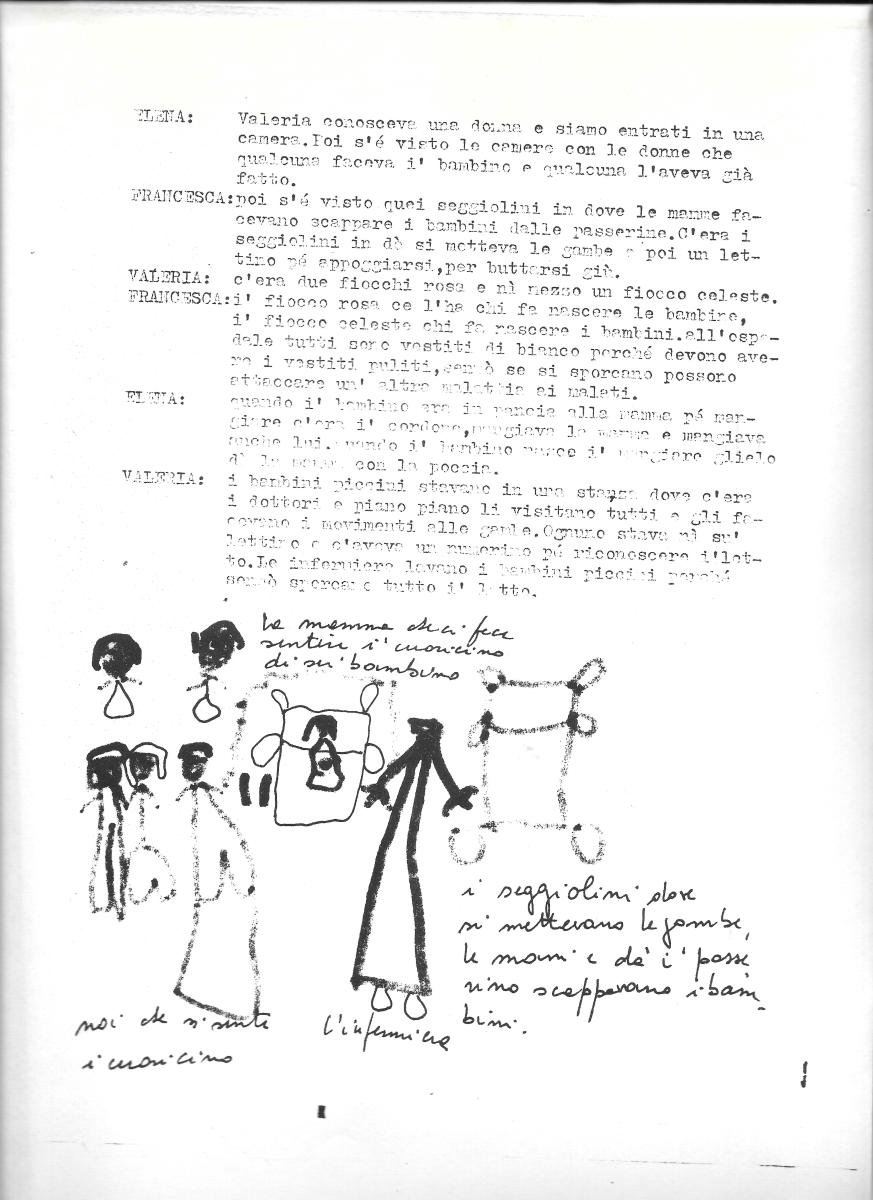 ELENA: Valeria conosceva una donna e siamo entrati in una
camera.Poi s'é visto le camere con le donne che
qualcuna faceva i' bambino e qualcuna l'aveva già
fatto.
FRANCESCA:poi s'é visto quei seggiolini in dove le mamme fa-
cevano scappare i bambini dalle passerine.C'era i
seggiolini in dò si metteva le gambe e poi un let-
tino pé appoggiarsi,per buttarsi giù.
VALERIA: c'era due fiocchi rosa e nì mezzo un fiocco celeste.
FRANCESCA:i' fiocco rosa ce l'ha chi fa nascere le bambine,
i' fiocco celeste chi fa nascere i bambini.all'ospe-
dale tutti sono vestiti di bianco perché devono ave-
re i vestiti puliti,sennò se si sporcano possono
attaccare un' altra malattia ai malati.
ELENA: quando i' bambino era in pancia alla mamma pé man-
giare c'era i' cordone,mangiava la mamma e mangiava
anche lui.quando i' bambino nasce i' mangiare glielo
dà la mamma con la poccia.
VALERIA: i bambini piccini stavano in una stanza dove c'era
i dottori e piano piano li visitano tutti e gli fa-
cevano i movimenti alle gambe.Ognuno stava nì su'
lettino e c'aveva un numerino pé riconoscere i'let-
to.Le infermiere lavano i bambini piccini perché
sennò sporcano tutto i' letto.
la mamma che ci fece
sentire i' cuoricino
di su' bambino
i seggiolini dove
si mettevano le gambe,
le mani e da i' passe
rino scappavano i bam-
bini.
noi che si sente
i cuoricino
l'infermiera